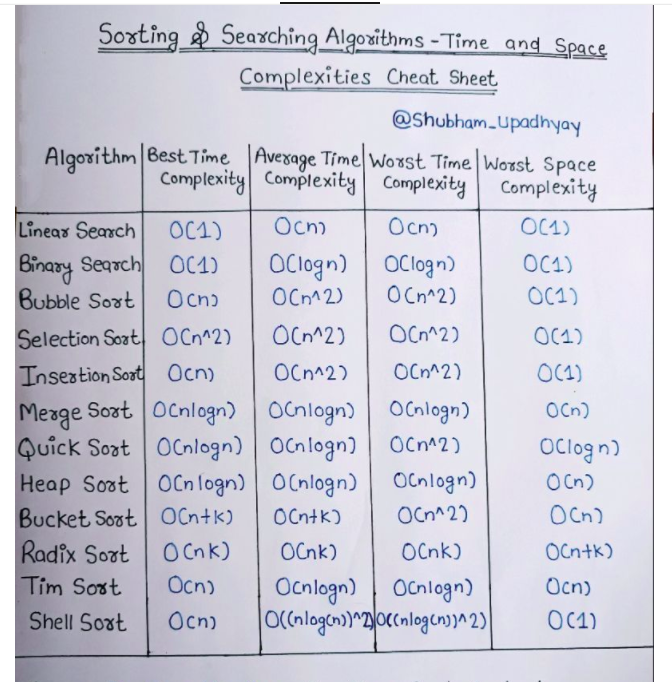 Sorting & Searching Algorithms - Time and Space
Complexities Cheat Sheet
@Shubham_Upadhyay
Algorithm Best Time Complexity Average Time Complexity Worst Time Complexity Worst Space Complexity
Linear Search O(1) O(n) O(n) O(1)
Binary Search O(1) O(logn) O(logn) O(1)
Bubble Sort O(n) O(n^2) O(n^2) O(1)
Selection Sort O(n^2) O(n^2) O(n^2) O(1)
Insertion Sort O(n) O(n^2) O(n^2) O(1)
Merge Sort O(nlogn) O(nlogn) O(nlogn) O(n)
Quick Sort O(nlogn) O(nlogn) O(n^2) O(logn)
Heap Sort O(nlogn) O(nlogn) O(nlogn) O(n)
Bucket Sort O(n+k) O(n+k) O(n^2) O(n)
Radix Sort O(nk) O(nk) O(nk) O(n+k)
Tim Sort O(n) O(nlogn) O(nlogn) O(n)
Shell Sort O(n) O((nlog(n))^2) O((nlog(n))^2) O(1)